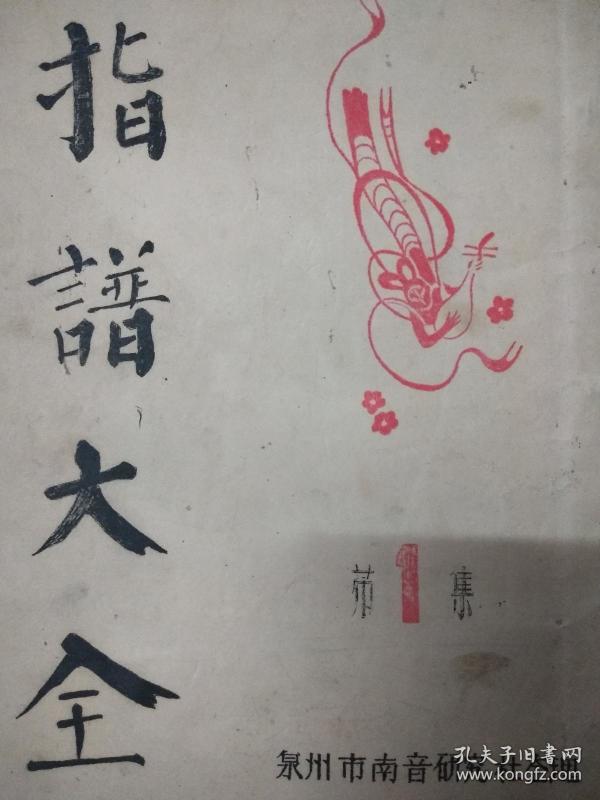 指譜大全
第1集
泉州市南音研究社整理
孔夫子旧书网
www.kongfz.com